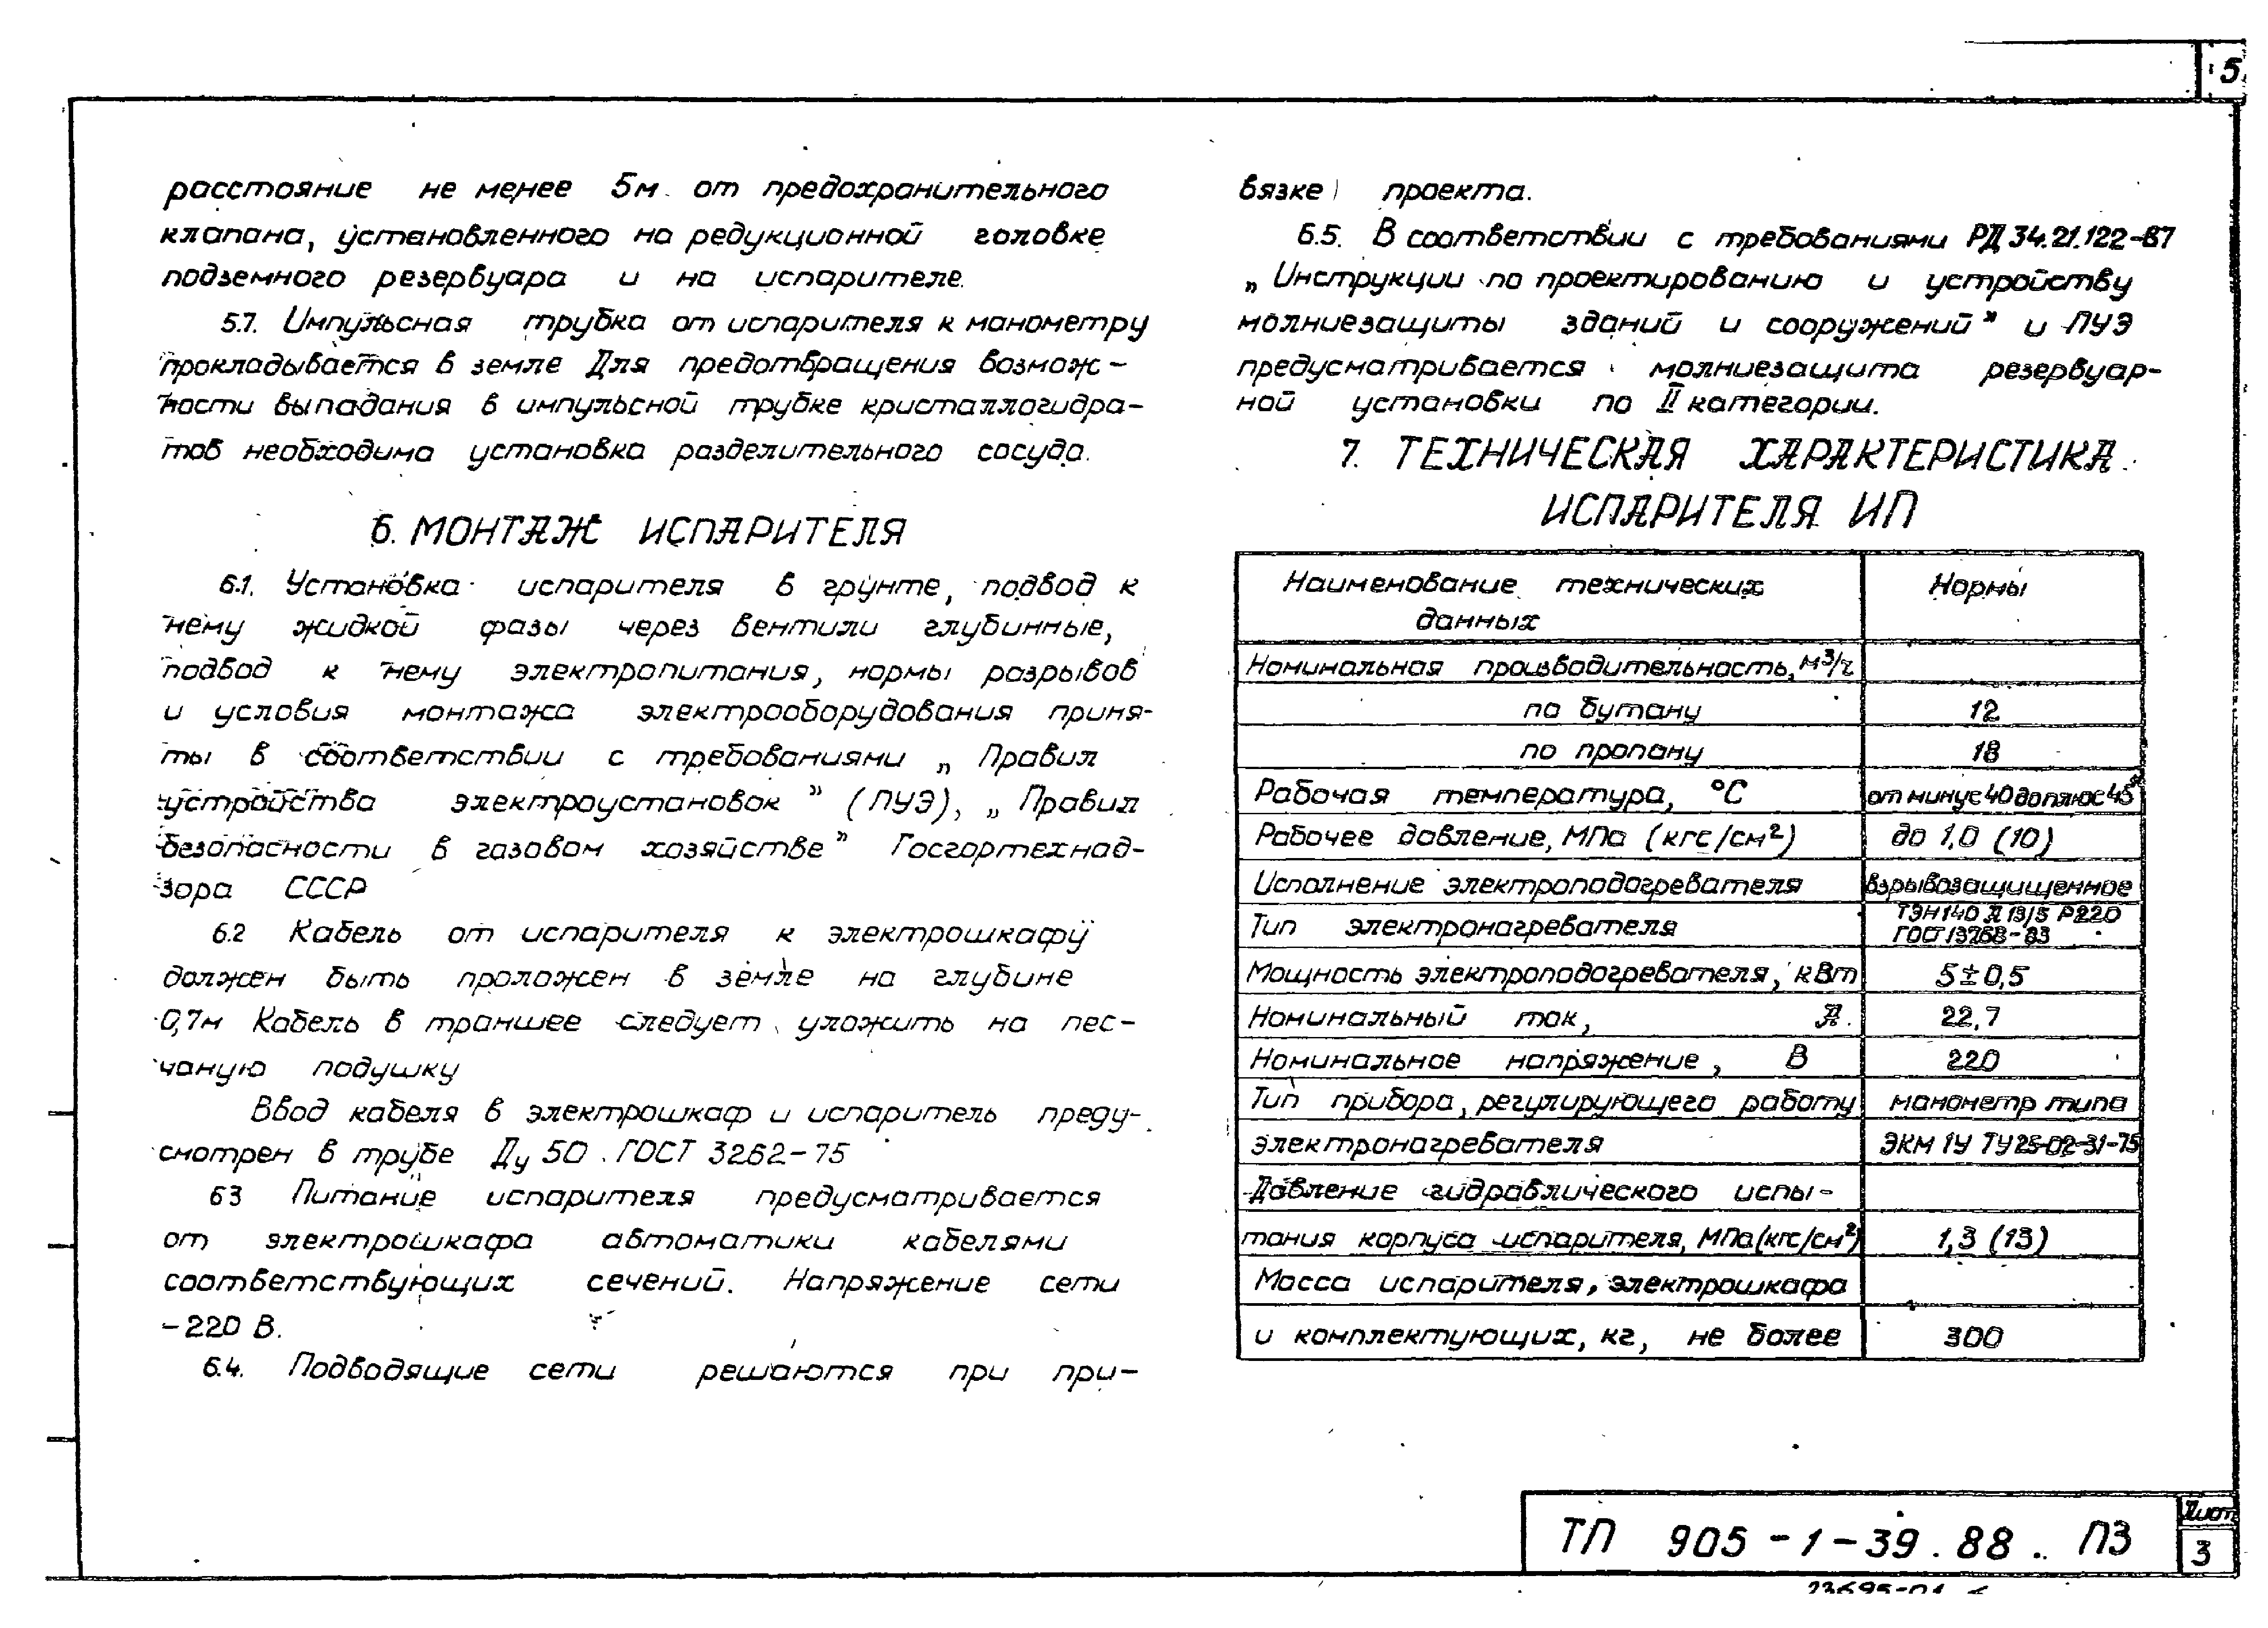 5
расстояние не менее 5м от предохранительного
клапана, установленного на редукционной головке
подземного резервуара и на испарителе.
5.7. Импульсная трубка от испарителя к манометру
прокладывается в земле Для предотвращения возмож-
ности выпадания в импульсной трубке кристаллогидра-
тов необходима установка разделительного сосуда.
6. МОНТАЖ ИСПАРИТЕЛЯ
6.1. Установка испарителя в грунте, подвод к
нему жидкой фазы через вентили глубинные,
подвод к нему электропитания, нормы разрывов
и условия монтажа электрооборудования приня-
ты в соответствии с требованиями „Правил
устройства электроустановок" (ПУЭ), „Правил
безопасности в газовом хозяйстве" Госгортехнад-
зора СССР
6.2 Кабель от испарителя к электрошкафу
должен быть проложен в земле на глубине
0,7м Кабель в траншее следует уложить на пес-
чаную подушку
Ввод кабеля в электрошкаф и испаритель преду-
смотрен в трубе Ду 50 ГОСТ 3262-75
6.3 Питание испарителя предусматривается
от электрошкафа автоматики кабелями
соответствующих сечений. Напряжение сети
-220 В.
6.4. Подводящие сети решаются при при-
вязке проекта.
6.5. В соответствии с требованиями РД 34.21.122-87
„Инструкции по проектированию и устройству
молниезащиты зданий и сооружений" и ПУЭ
предусматривается молниезащита резервуар-
ной установки по II категории.
7. ТЕХНИЧЕСКАЯ ХАРАКТЕРИСТИКА
ИСПАРИТЕЛЯ ИП
Наименование технических Нормы
данных
Номинальная производительность, м³/ч
по бутану 12
по пропану 18
Рабочая температура, °С от минус 40 до плюс 45
Рабочее давление, МПа (кгс/см²) до 1,0 (10)
Исполнение электроподогревателя взрывозащищенное
Тип электронагревателя ТЭН 140 Д 13/5 Р220
ГОСТ 13268-83
Мощность электроподогревателя, кВт 5±0,5
Номинальный ток, А 22,7
Номинальное напряжение, В 220
Тип прибора, регулирующего работу манометр типа
электронагревателя ЭКМ 1У ТУ 25-02-31-75
Давление гидравлического испы-
тания корпуса испарителя, МПа (кгс/см²) 1,3 (13)
Масса испарителя, электрошкафа
и комплектующих, кг, не более 300
ТП 905-1-39.88. ПЗ
Лист
3